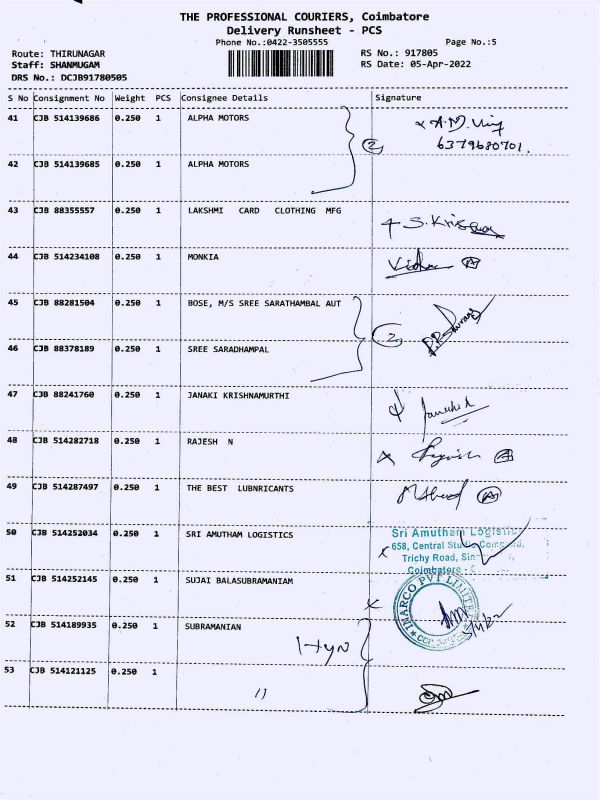 THE PROFESSIONAL COURIERS, Coimbatore
Delivery Runsheet - PCS
Phone No.:0422-3505555 Page No.:5
Route: THIRUNAGAR RS No.: 917805
Staff: SHANMUGAM RS Date: 05-Apr-2022
DRS No.: DCJB91780505
S No Consignment No Weight PCS Consignee Details Signature
41 CJB 514139686 0.250 1 ALPHA MOTORS
2 6379680701.
42 CJB 514139685 0.250 1 ALPHA MOTORS
43 CJB 88355557 0.250 1 LAKSHMI CARD CLOTHING MFG
44 CJB 514234108 0.250 1 MONKIA
45 CJB 88281504 0.250 1 BOSE, M/S SREE SARATHAMBAL AUT
2
46 CJB 88378189 0.250 1 SREE SARADHAMPAL
47 CJB 88241760 0.250 1 JANAKI KRISHNAMURTHI
48 CJB 514282718 0.250 1 RAJESH N
49 CJB 514287497 0.250 1 THE BEST LUBNRICANTS
50 CJB 514252034 0.250 1 SRI AMUTHAM LOGISTICS
Sri Amutham Logistics
658, Central Studio
Trichy Road,
Coimbatore -
51 CJB 514252145 0.250 1 SUJAI BALASUBRAMANIAM
PVT LIMITED
52 CJB 514189935 0.250 1 SUBRAMANIAN
53 CJB 514121125 0.250 1
11